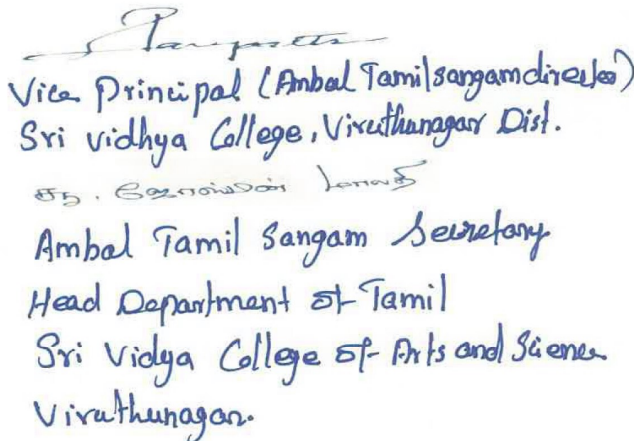 Vice Principal (Ambal Tamilsangam director)
Sri vidhya College, Viruthunagar Dist.
Ambal Tamil Sangam Secretary
Head Department of Tamil
Sri Vidya College of Arts and Science
Viruthunagar.